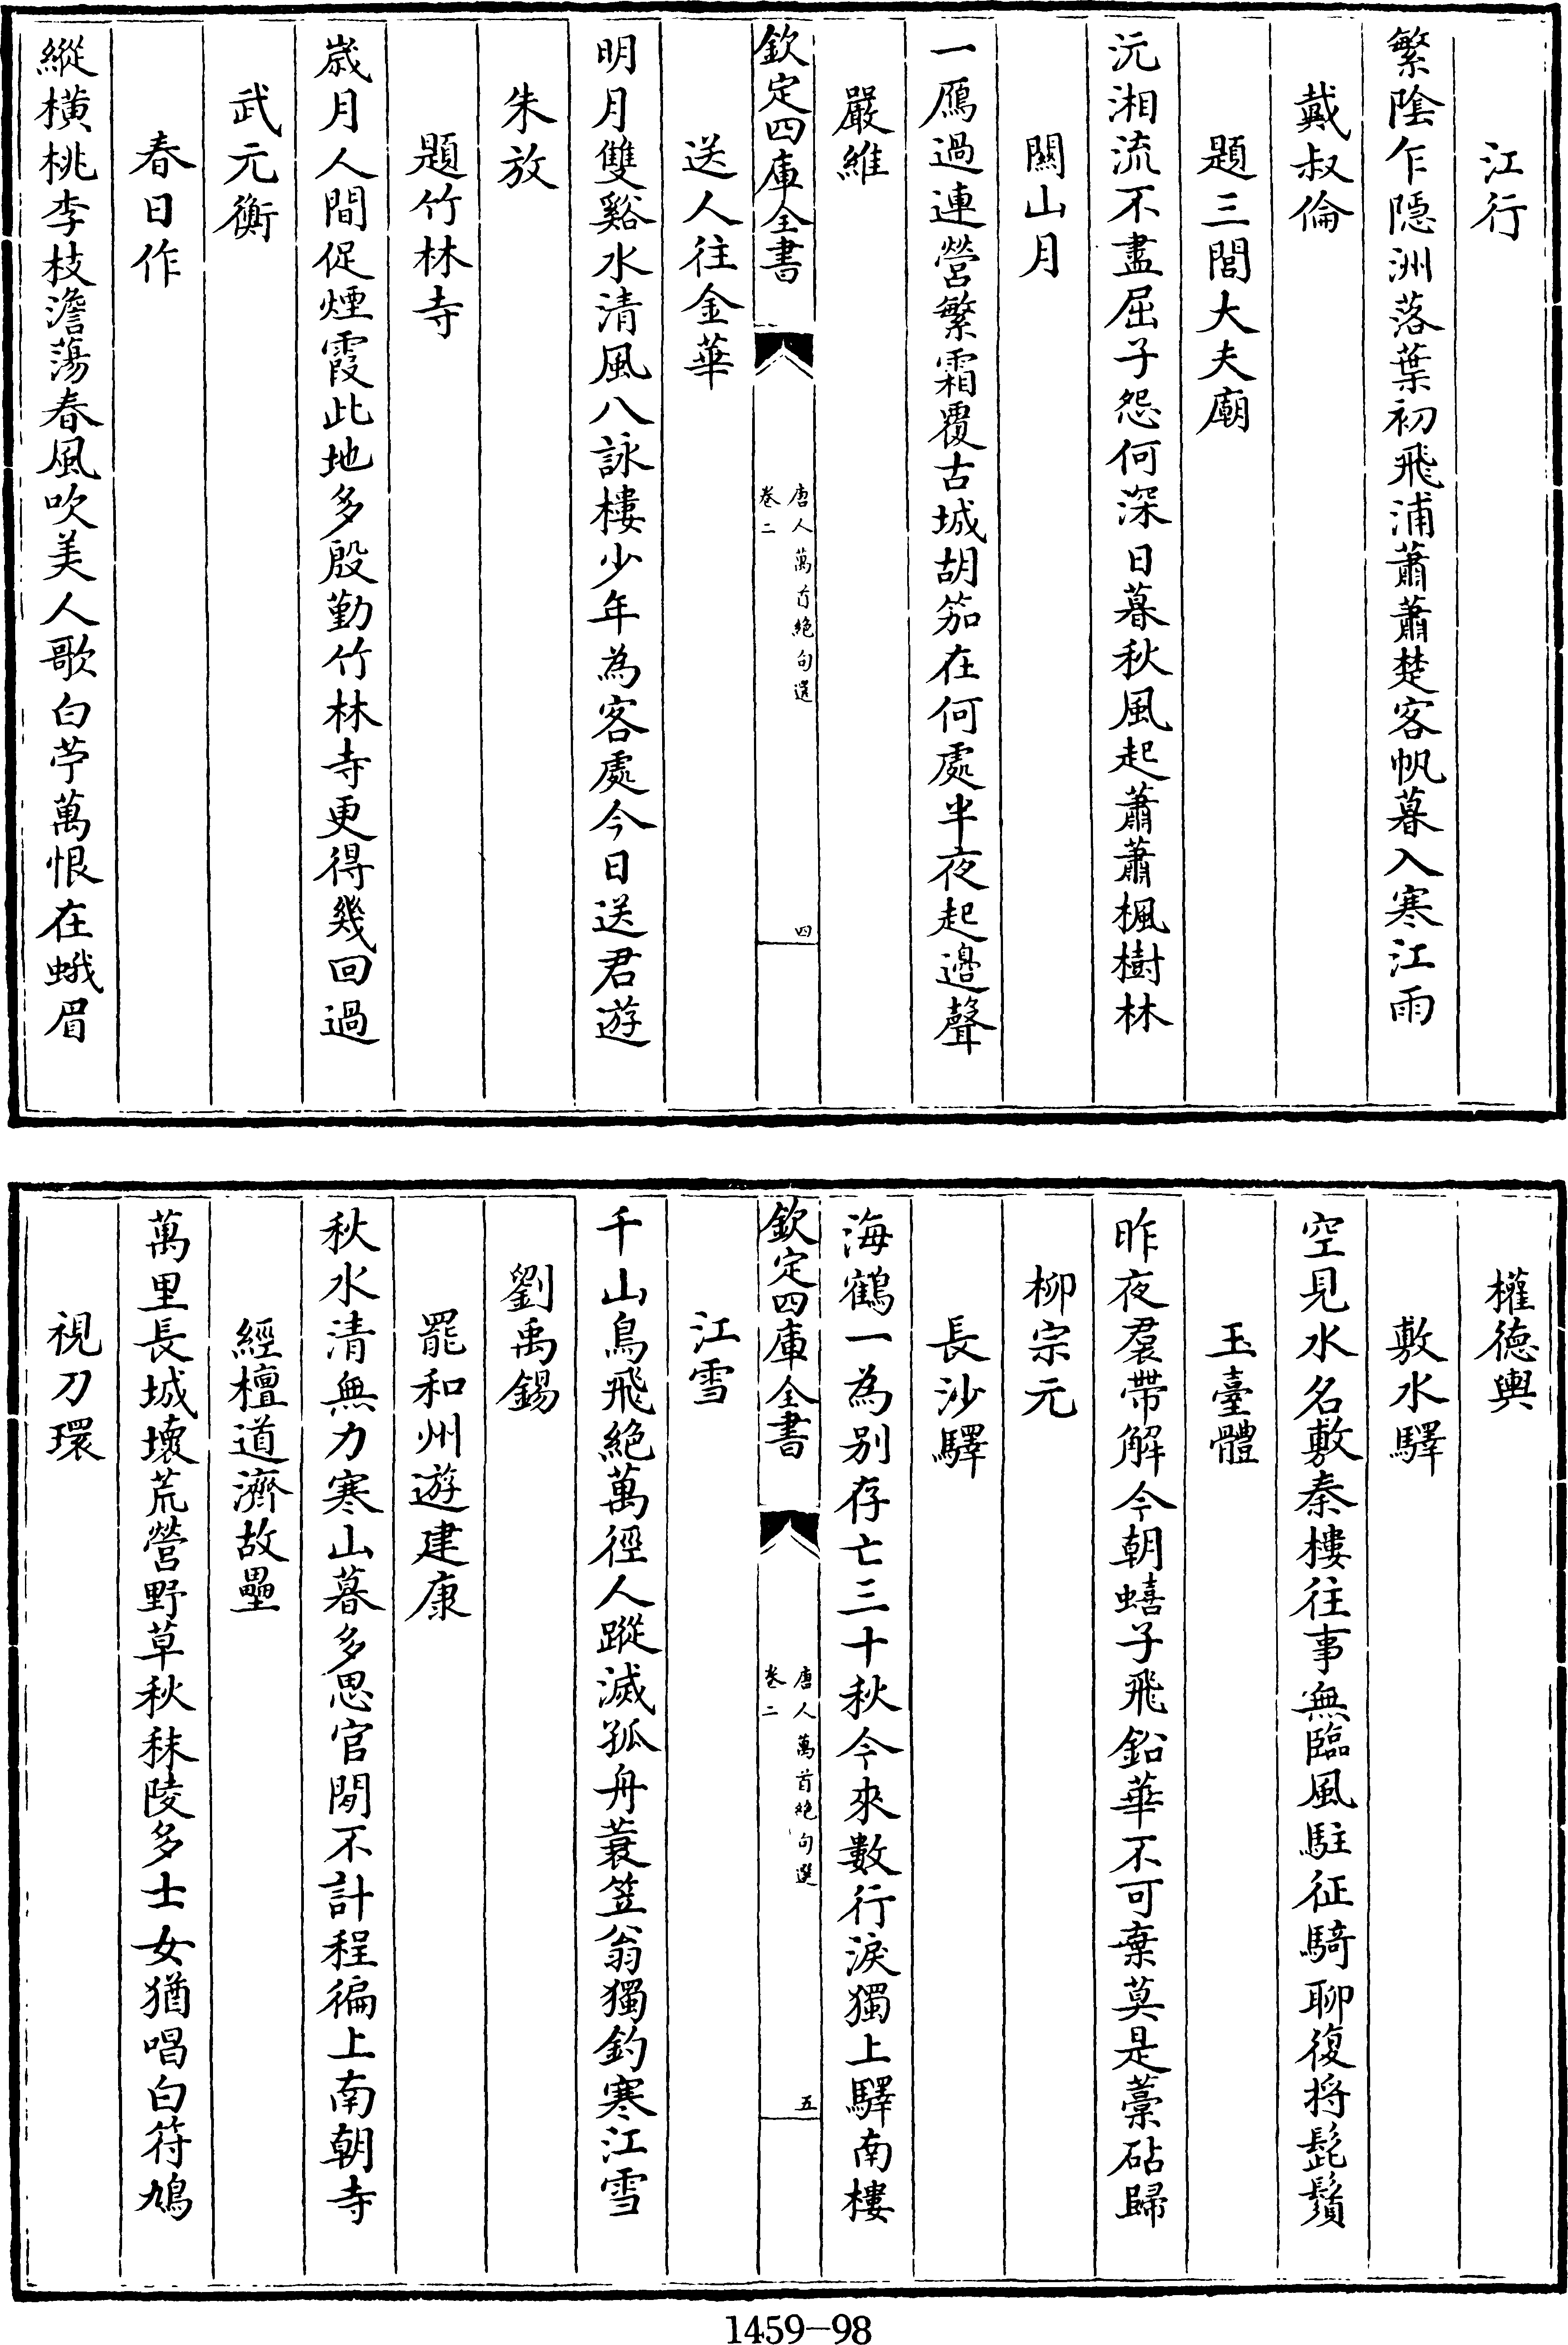 江行
繁陰乍隱洲落葉初飛浦蕭蕭楚客帆暮入寒江雨
戴叔倫
題三閭大夫廟
沅湘流不盡屈子怨何深日暮秋風起蕭蕭楓樹林
關山月
一鴈過連營繁霜覆古城胡笳在何處半夜起邊聲
嚴維
欽定四庫全書
唐人萬首絶句選
卷二
四
送人往金華
明月雙谿水清風八詠樓少年為客處今日送君遊
朱放
題竹林寺
歲月人間促煙霞此地多殷勤竹林寺更得幾回過
武元衡
春日作
縱橫桃李枝澹蕩春風吹美人歌白苧萬恨在蛾眉
權德輿
敷水驛
空見水名敷秦樓往事無臨風駐征騎聊復捋髭鬚
玉臺體
昨夜裙帶解今朝蟢子飛鉛華不可棄莫是藁砧歸
柳宗元
長沙驛
海鶴一為别存亡三十秋今來數行淚獨上驛南樓
欽定四庫全書
唐人萬首絶句選
卷二
五
江雪
千山鳥飛絶萬徑人蹤滅孤舟蓑笠翁獨釣寒江雪
劉禹錫
罷和州遊建康
秋水清無力寒山暮多思官閒不計程徧上南朝寺
經檀道濟故壘
萬里長城壞荒營野草秋秣陵多士女猶唱白符鳩
視刀環
1459-98